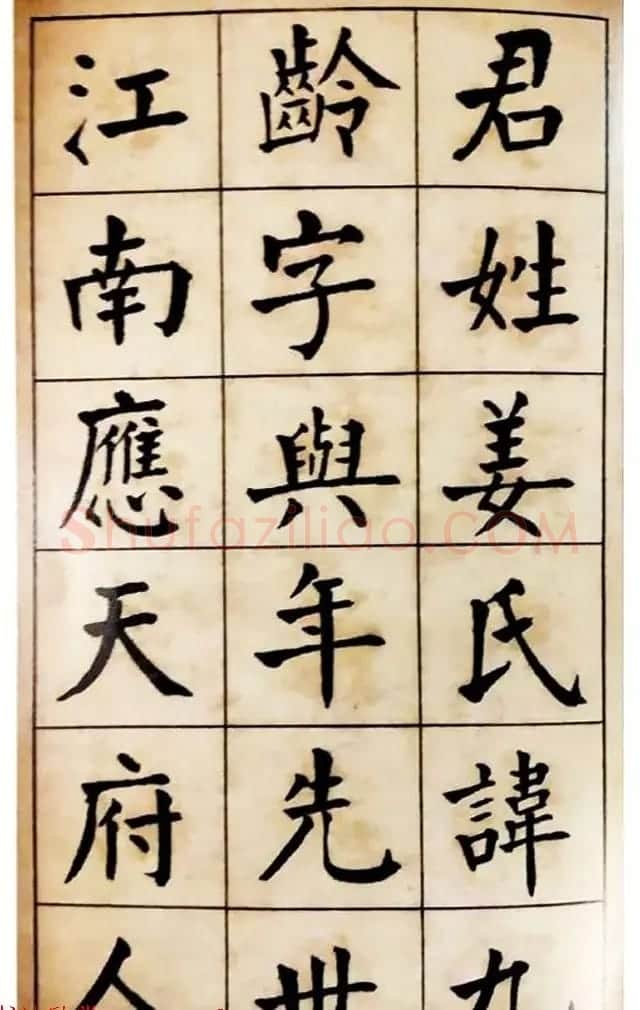 君姓姜氏諱九
齡字與年先世
江南應天府人
Shufaziliao.COM